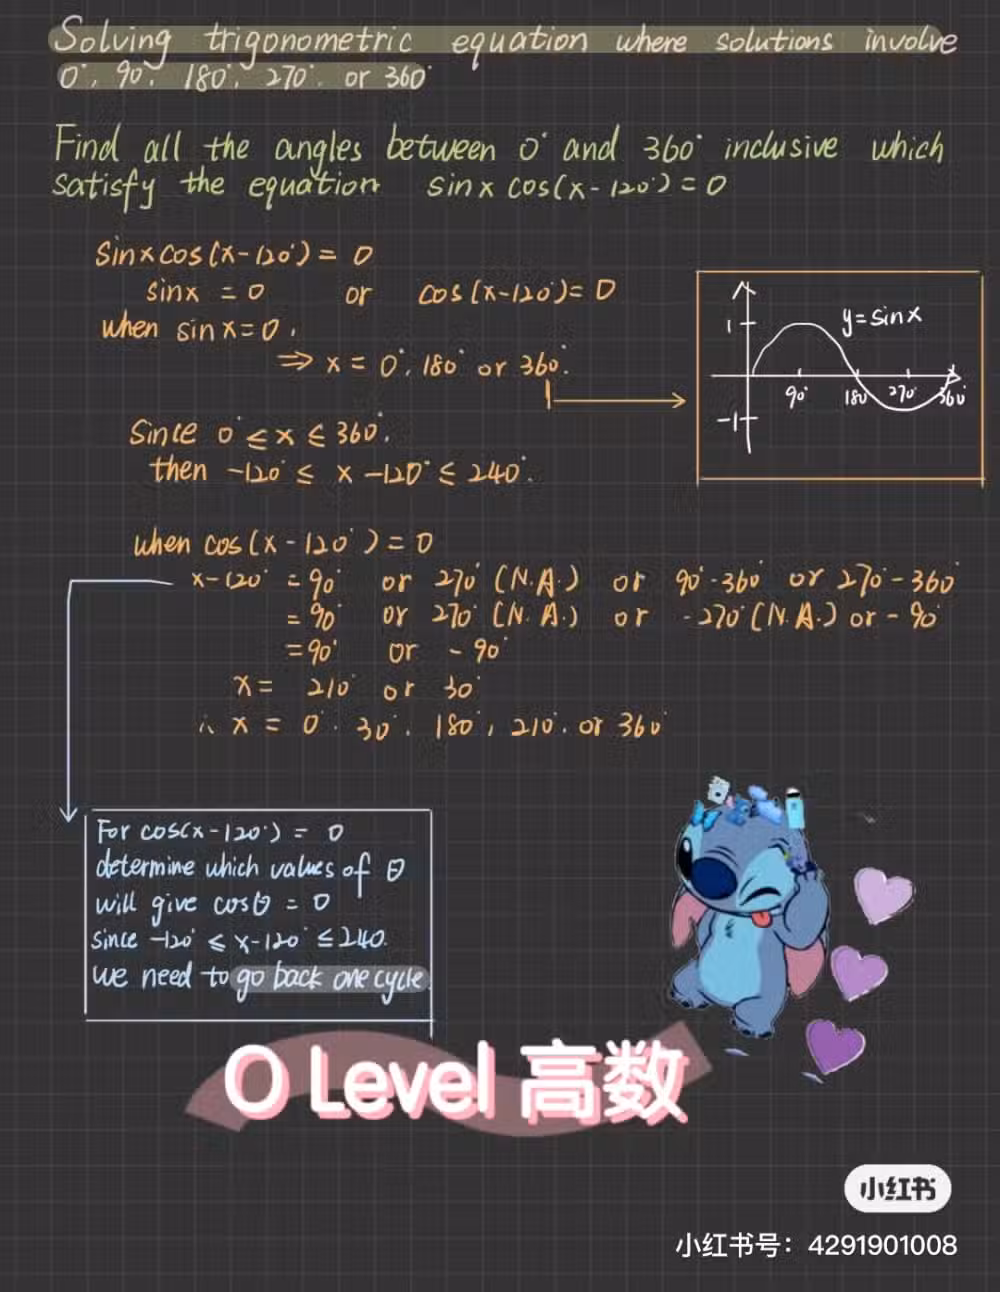 Solving trigonometric equation where solutions involve
0°, 90°, 180°, 270°, or 360°
Find all the angles between 0° and 360° inclusive which
satisfy the equation sinx cos(x-120°) = 0
Sinxcos(x-120°) = 0
sinx = 0 or cos(x-120°) = 0
when sinx=0,
⇒ x = 0°, 180° or 360°.
1
y=sinx
90° 180° 270° 360°
-1
Since 0° ≤ x ≤ 360°,
then -120° ≤ x -120° ≤ 240°.
when cos(x - 120°) = 0
x-120° = 90° or 270° (N.A.) or 90°-360° or 270°-360°
= 90° or 270° (N.A.) or -270° (N.A.) or -90°
= 90° or -90°
x = 210° or 30°
∴ x = 0°, 30°, 180°, 210°, or 360°
For cos(x-120°) = 0
determine which values of θ
will give cosθ = 0
since -120° ≤ x-120° ≤ 240.
we need to go back one cycle
O Level 高数
小红书
小红书号：4291901008